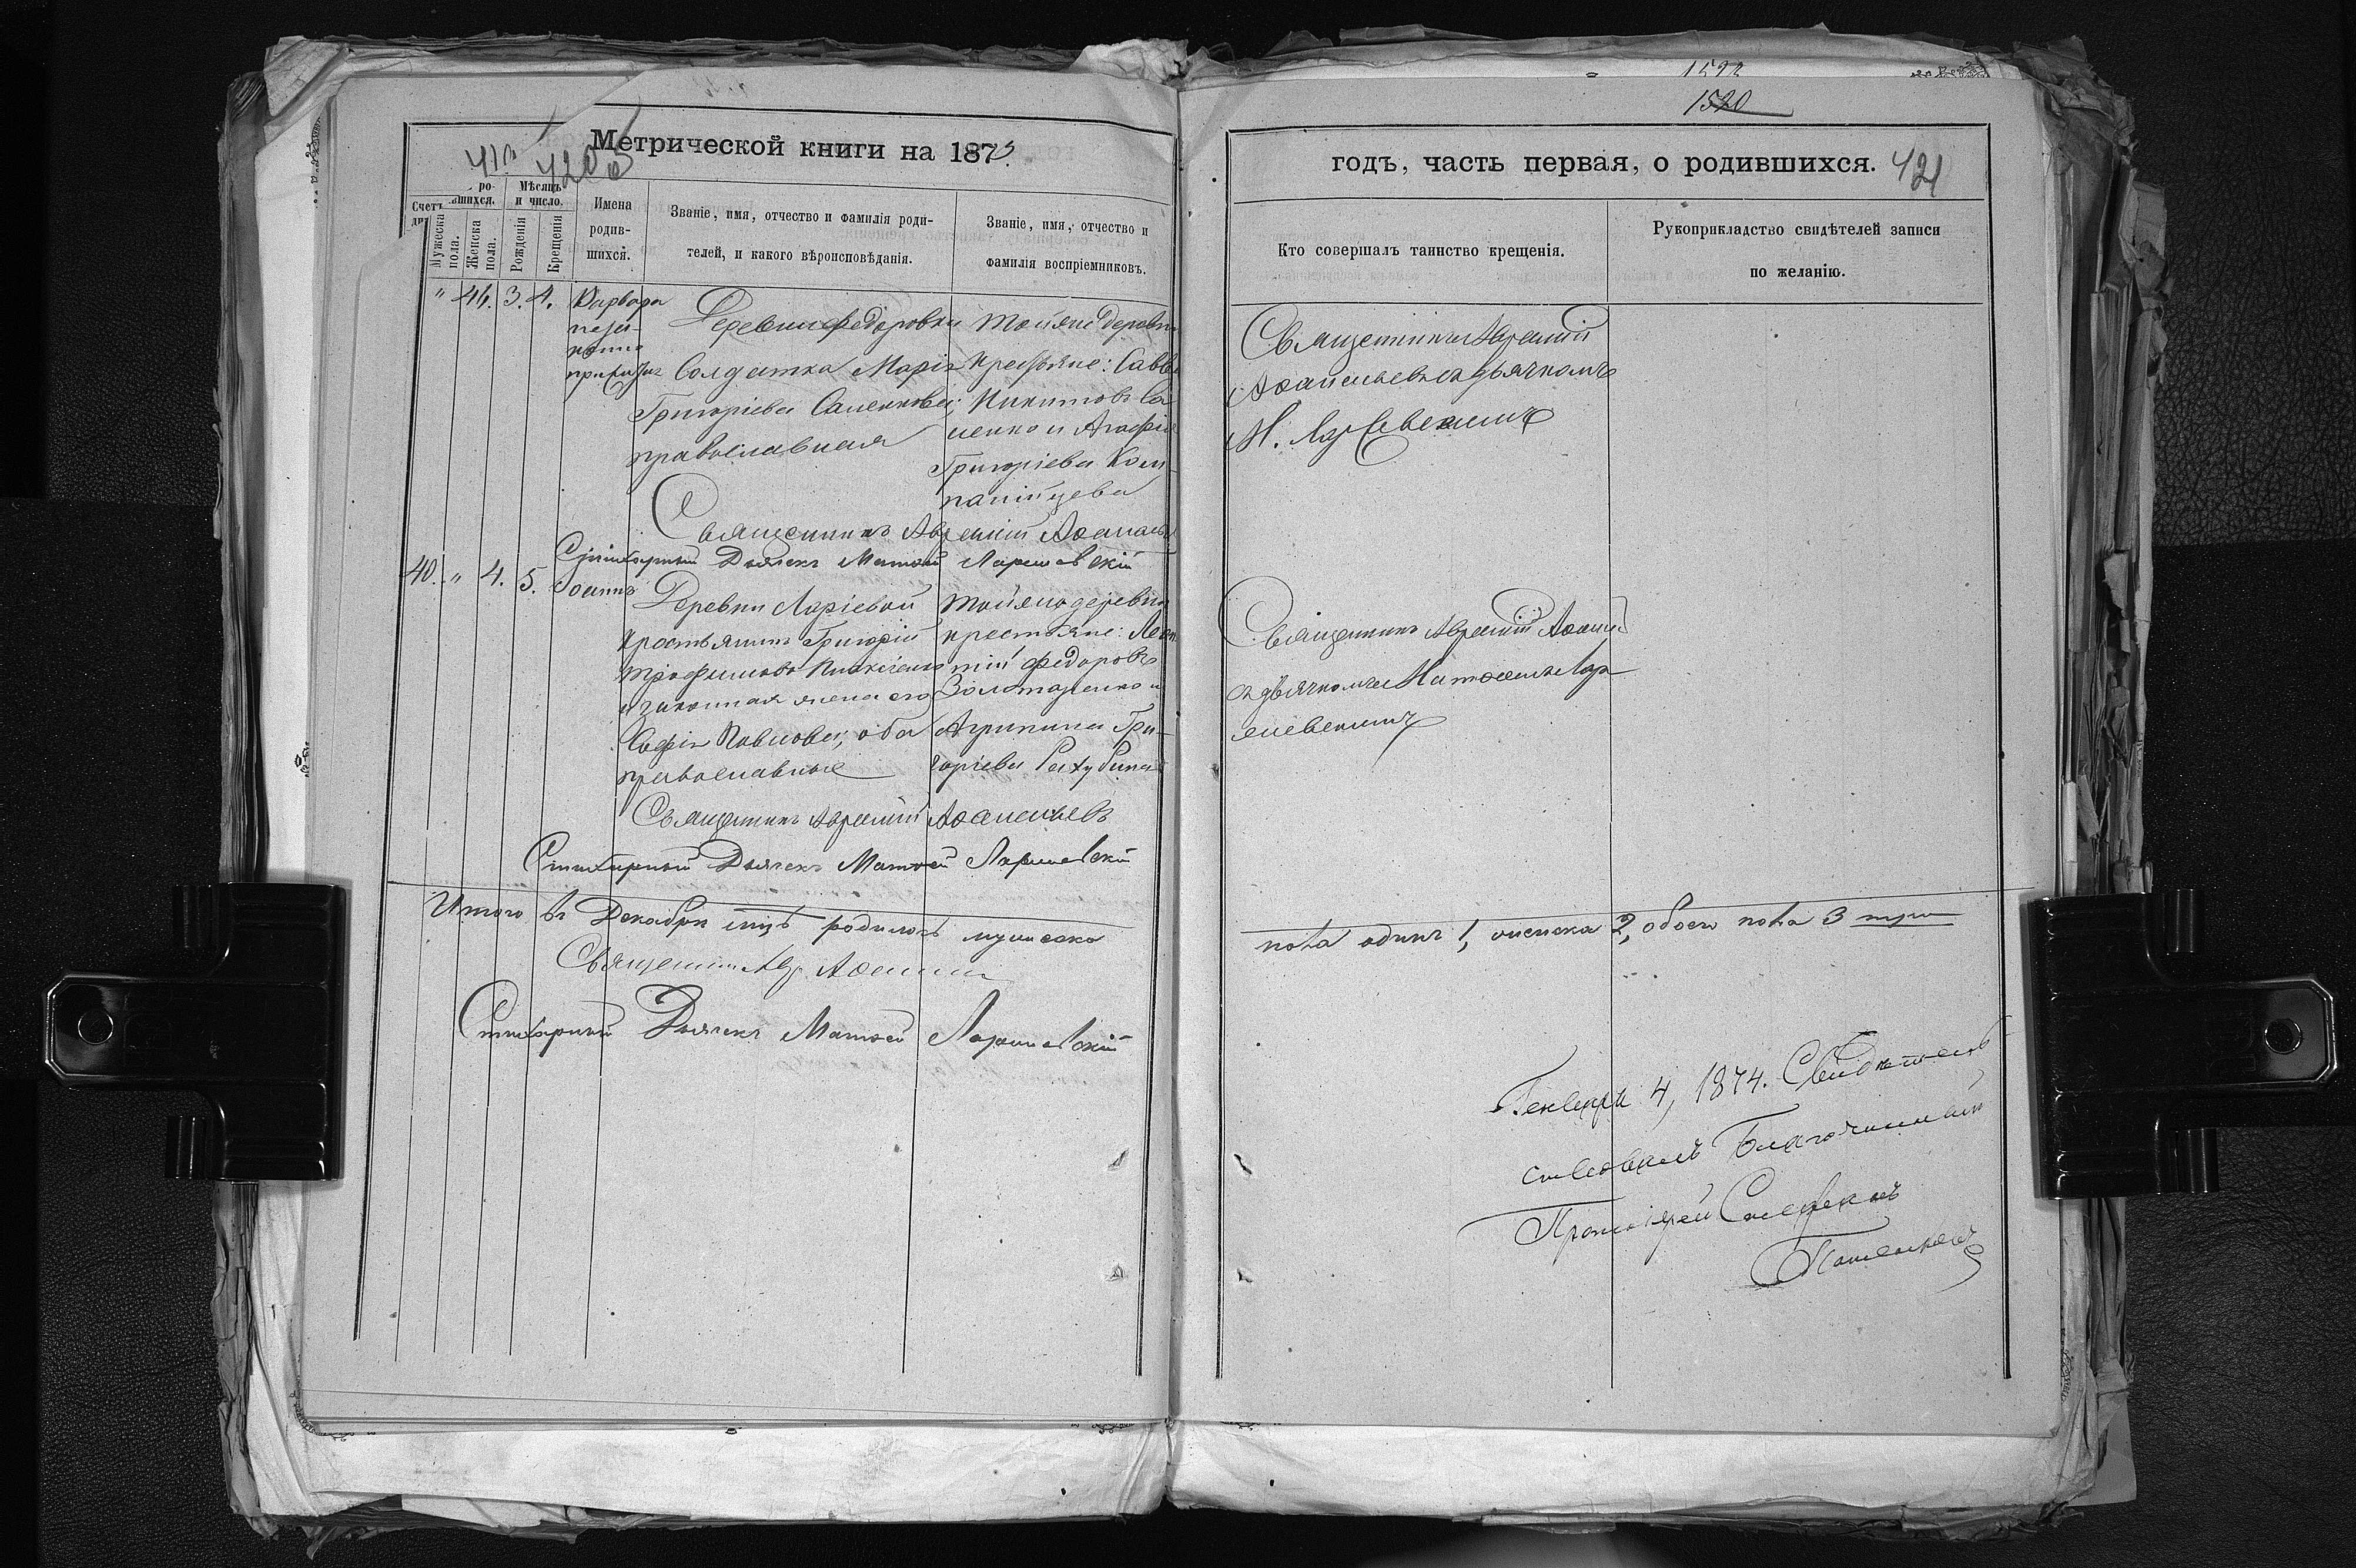 1522
1520
Метрической книги на 1873.
годъ, часть первая, о родившихся.
420
421
Счетъ ро-
вшихся.
Мужеска пола.
Женска пола.
Мѣсяцъ и число.
Рожденія
Крещенія
Имена
родив-
шихся.
Званіе, имя, отчество и фамилія роди-
телей, и какого вѣроисповѣданія.
Званіе, имя, отчество и
фамилія воспріемниковъ.
Кто совершалъ таинство крещенія.
Рукоприкладство свидѣтелей записи
по желанію.
" 44. 3. 4. Варвара
неза-
конно
Деревни Федоровки
Солдатка Марія
Григоріева Саменкова;
православная
Тойже деревни
крестьяне: Савва
Никитовъ Са-
менко и Агафія
Григоріева Ком-
панійцева
Священникъ Аврамій
Аѳанасьевъ съ дьячкомъ
М.
Священникъ Аврамій Аѳанасьев
Стихарный Дьячекъ Матѳей
40. " 4. 5. Іоаннъ
Деревни Ларіевой
крестьянинъ Григорій
Трофимовъ
и законная жена его
Софія Павлова; оба
православные
Тойже деревни
крестьяне:
тій Федоровъ
Золотаренко и
Агрипина Гри-
горіева
Священникъ Аврамій Аѳанась
съ дьячкомъ Матѳеемъ Лар
Священникъ Аврамій Аѳанасьевъ
Стихарный Дьячекъ Матѳей
Итого въ Декабрѣ мцѣ родилось мужеска
пола одинъ 1, женска 2, обоего пола 3 три
Священникъ Авр. Аѳанась
Стихарный Дьячекъ Матѳей
Генваря 4, 1874. Свидѣтель-
ствовалъ Благочинный
Протоіерей